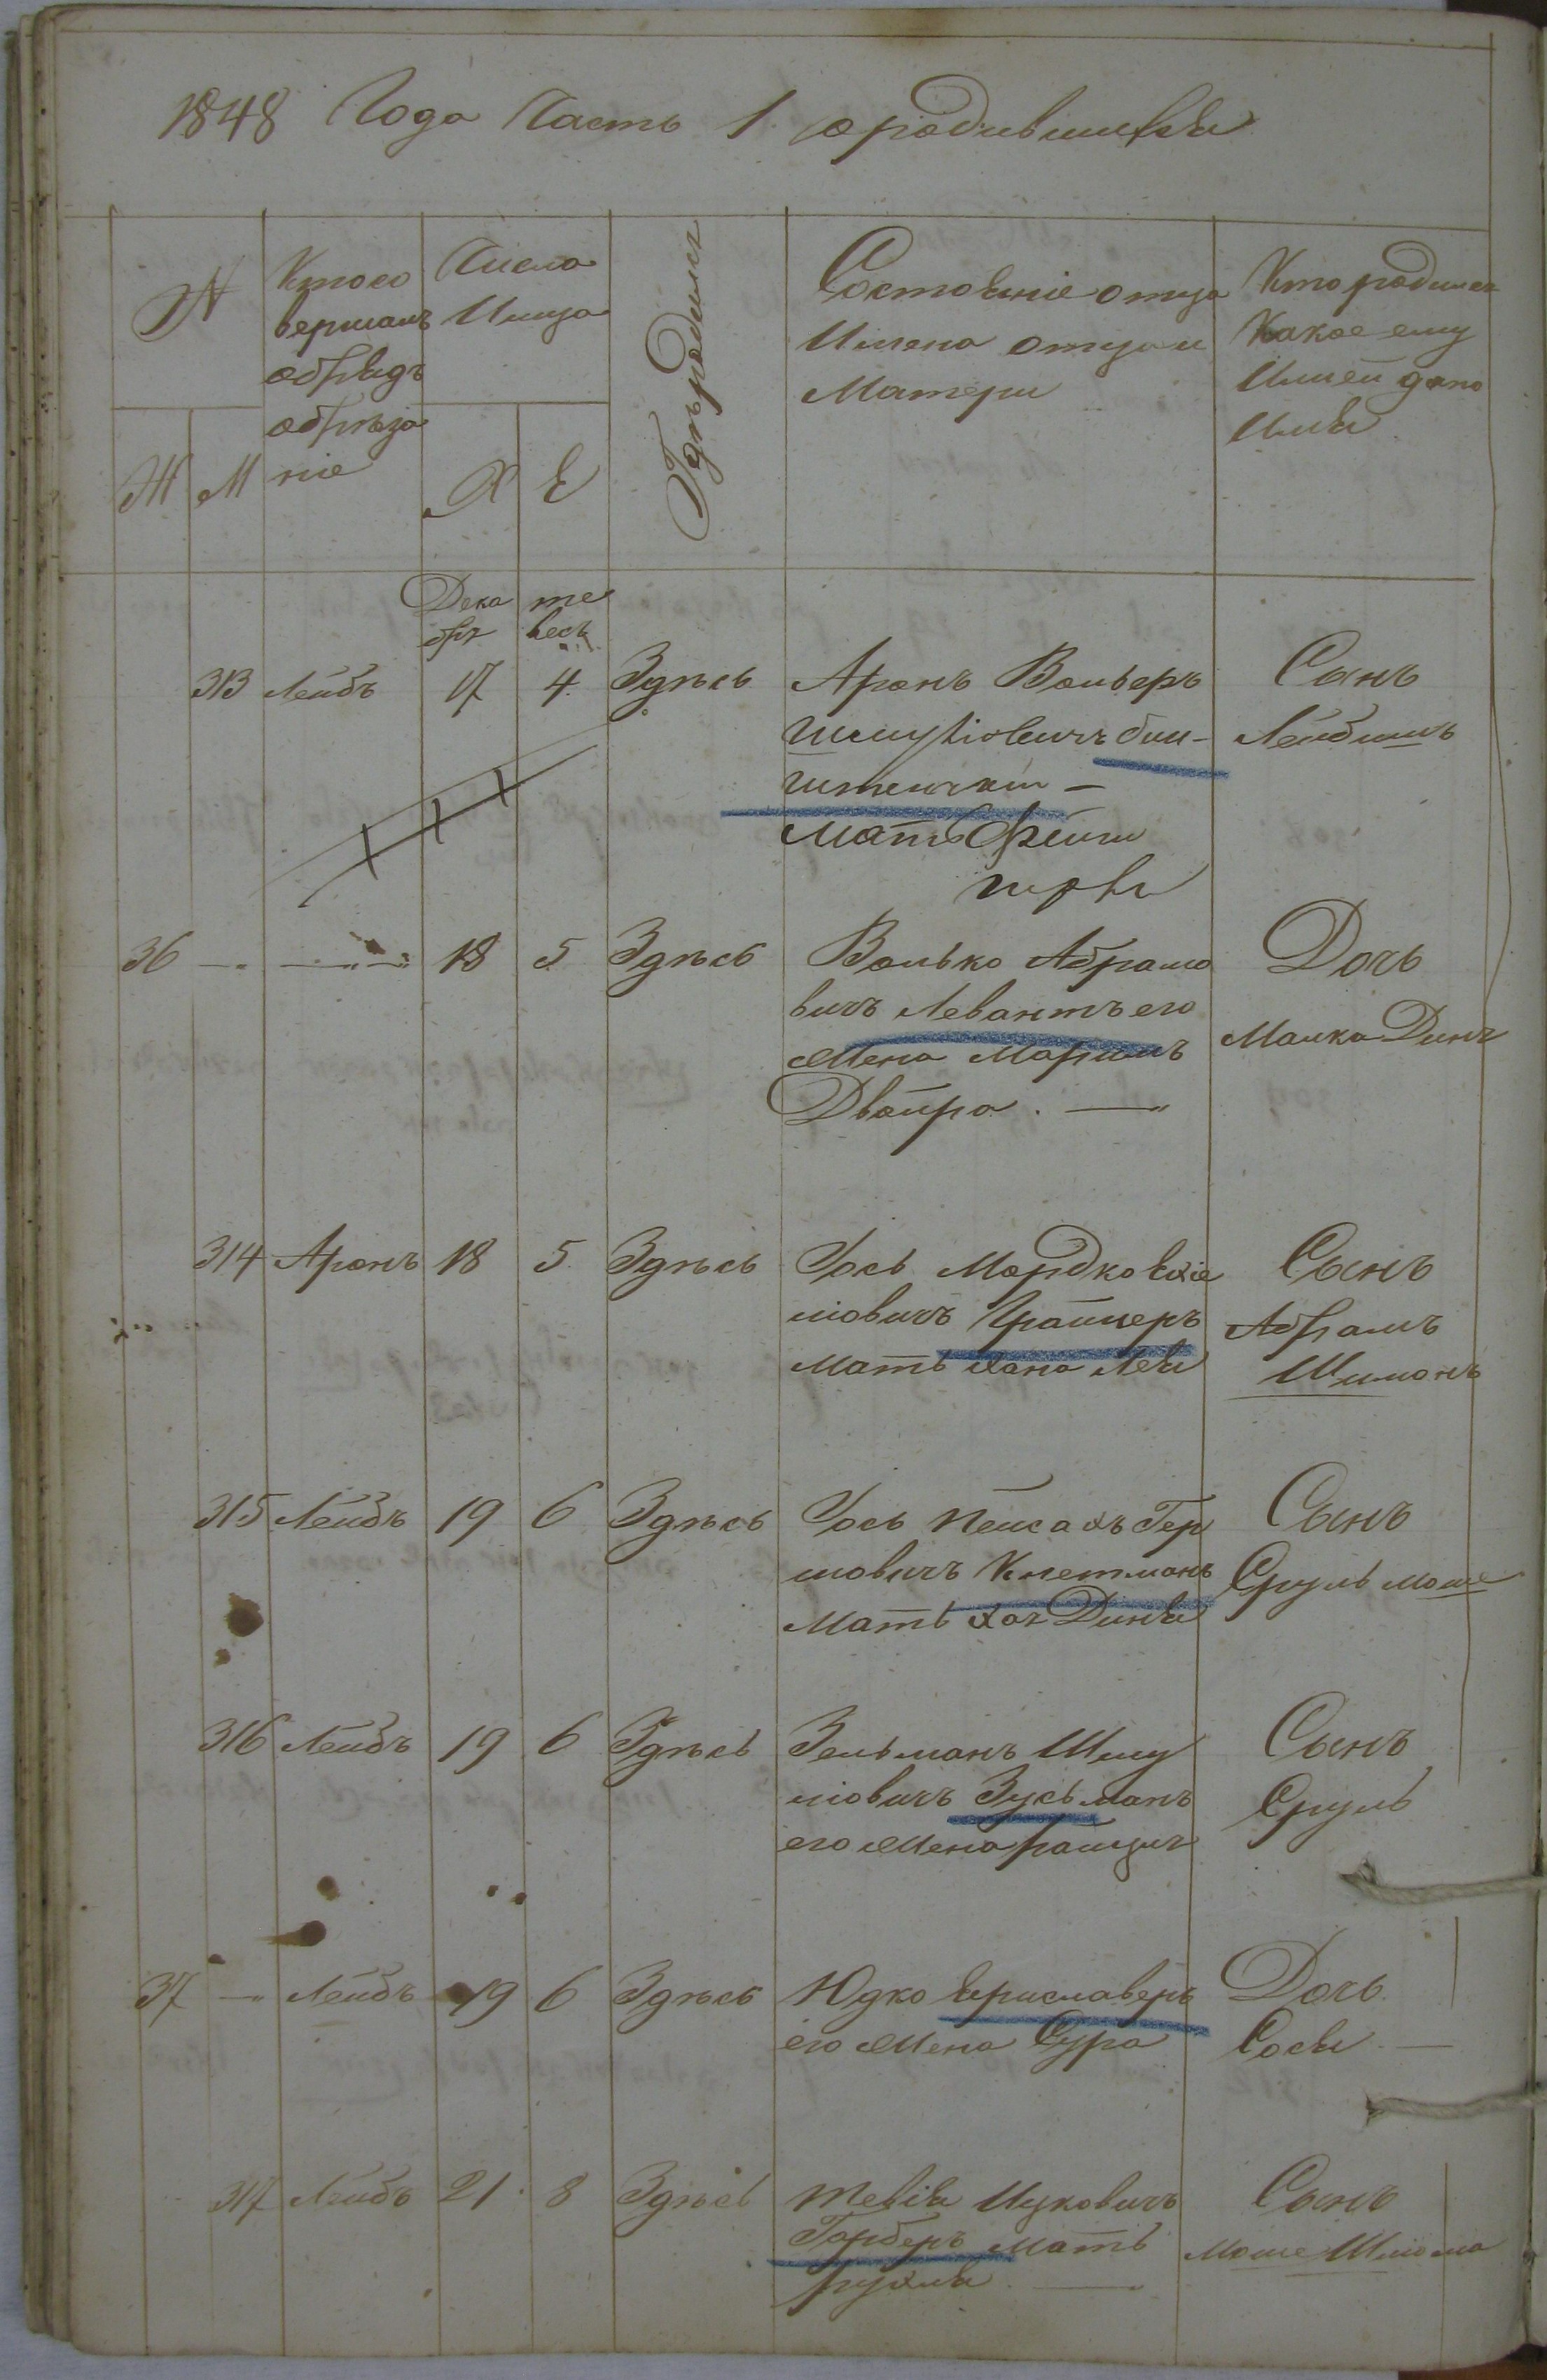 1848 Года Часть 1. о родившихся
№
Ж М
Кто со
вершалъ
обрядъ
обрѣза
ніе
Числа
Мица
Х Е
Гдѣ родился
Состояніе отца
Имена отца и
Матери
Кто родился
Какое ему
Имей дано
Имя
Дека
бръ
те
весъ
313 Лейбъ 17 4. Здѣсь
Аронъ Вольберъ
Шмулiовичъ бин-
штенчкiй -
мать Фейги
Сынъ
Лейбишъ
36 — — 18 5 Здѣсь
Волько Абрамо
вичъ Левантъ его
Жена Маріимъ
Двойра. —
Дочь
Малка Дина
314 Аронъ 18 5 Здѣсь
Іось Мордко Ехіе
ліовичъ Грайцеръ
Мать Хана Леа
Сынъ
Абрамъ
Шимонъ
315 Лейбъ 19 6 Здѣсь
Іось Пейсахъ Гер
шовичъ Кнетманъ
Мать Хая Динa
Сынъ
Сруль Моше
316 Лейбъ 19 6 Здѣсь
Зельманъ Шму
ліовичъ Зусьманъ
его Жена Райца
Сынъ
Сруль
37 — Лейбъ 19 6 Здѣсь
Юдко Ериславеръ
его Жена Сура
Дочь
Сося —
317 Лейбъ 21. 8 Здѣсь
Тевія Ицковичъ
Горберъ Мать
Рухля —
Сынъ
Моше Шліома